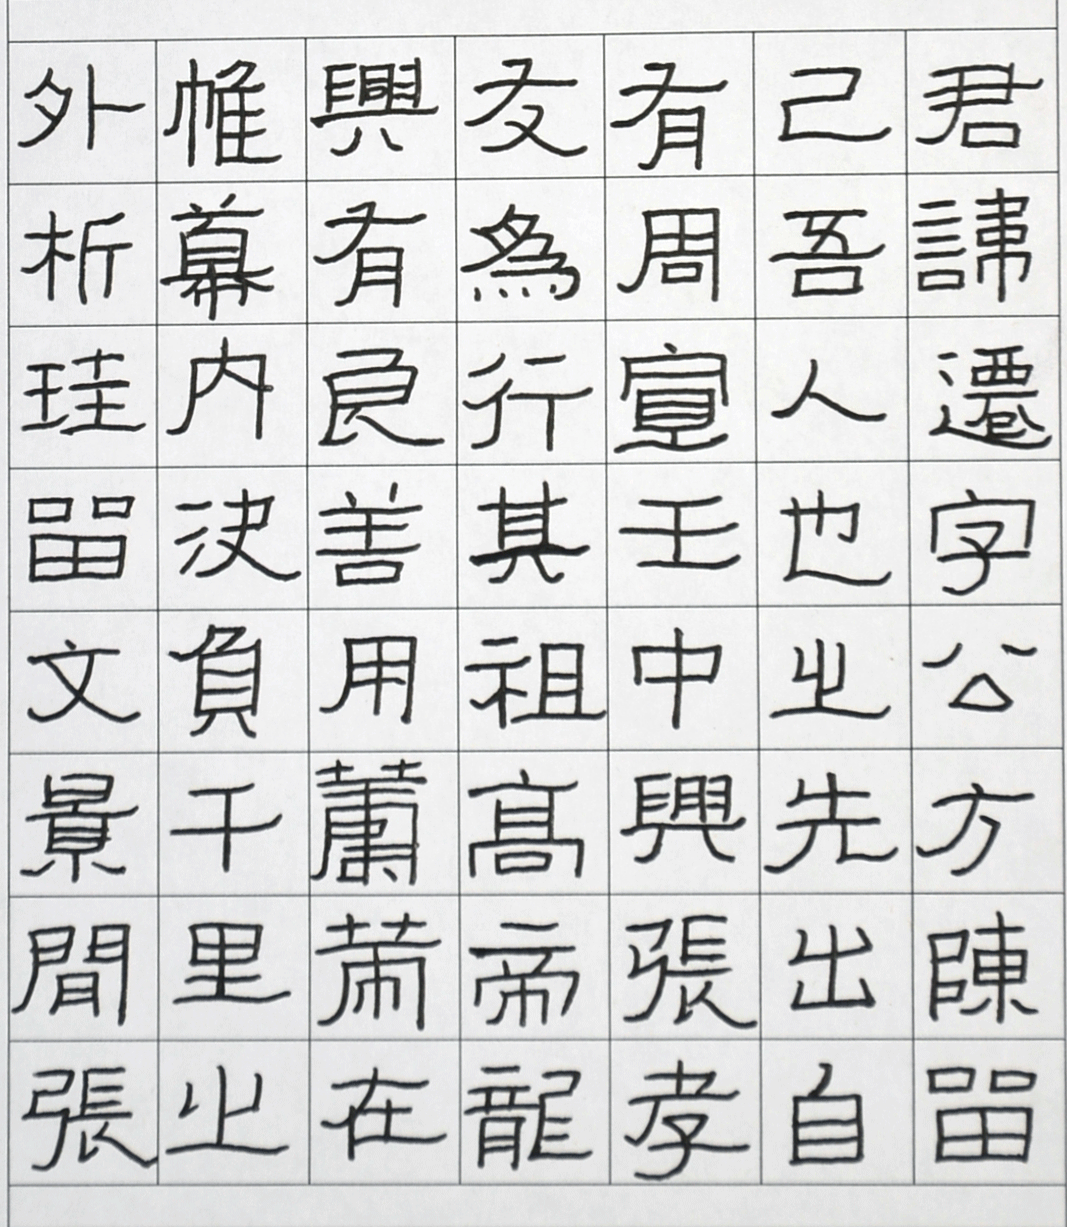 君諱遷字公方陳留
己吾人也之先出自
有周宣王中興張孝
友為行其祖高帝龍
興有良善用蕭荷在
帷幕內決負千里之
外析珪留文景間張